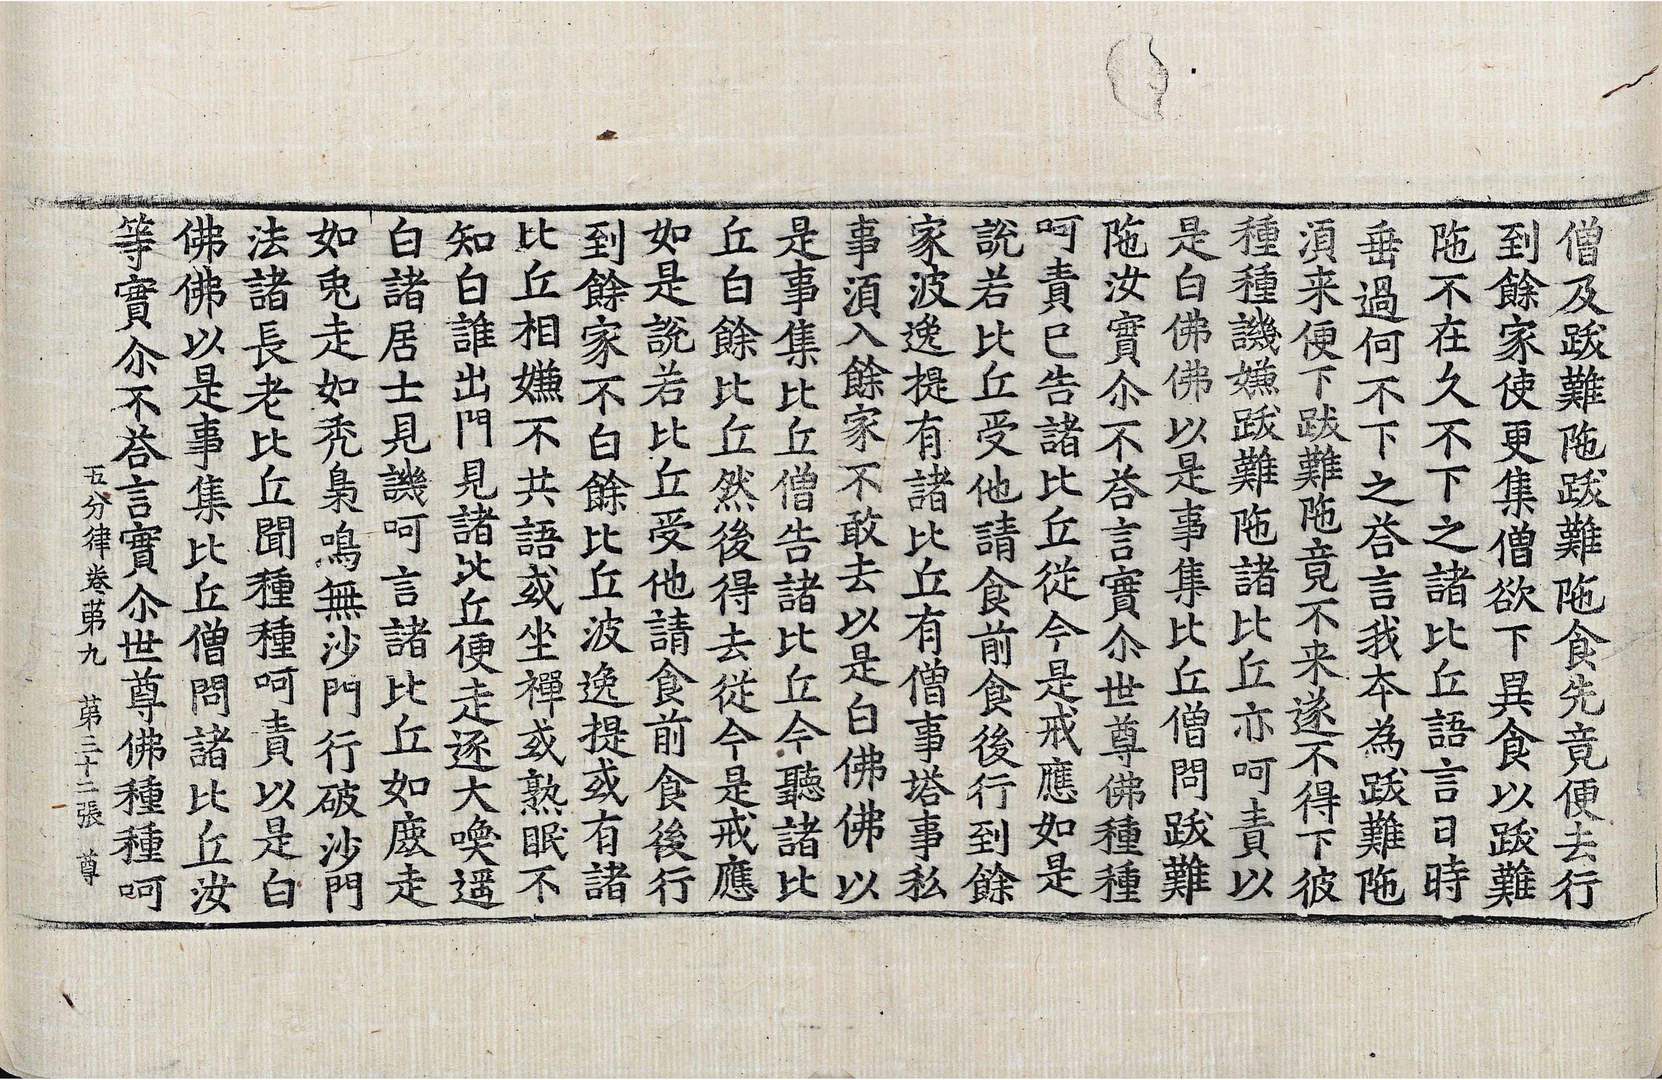 僧及跋難陁跋難陁食先竟便去行
到餘家使更集僧欲下異食以跋難
陁不在久不下之諸比丘語言日時
垂過何不下之荅言我本為跋難陁
湏来便下跋難陁竟不来遂不得下彼
種種譏嫌跋難陁諸比丘亦呵責以
是白佛佛以是事集比丘僧問跋難
陁汝實尒不荅言實尒世尊佛種種
呵責已告諸比丘從今是戒應如是
說若比丘受他請食前食後行到餘
家波逸提有諸比丘有僧事塔事私
事湏入餘家不敢去以是白佛佛以
是事集比丘僧告諸比丘今聽諸比
丘白餘比丘然後得去從今是戒應
如是說若比丘受他請食前食後行
到餘家不白餘比丘波逸提或有諸
比丘相嫌不共語或坐禪或熟眠不
知白誰出門見諸比丘便走逐大喚遥
白諸居士見譏呵言諸比丘如䴥走
如兎走如禿梟鳴無沙門行破沙門
法諸長老比丘聞種種呵責以是白
佛佛以是事集比丘僧問諸比丘汝
等實尒不荅言實尒世尊佛種種呵
五分律卷苐九 苐三十二張 尊